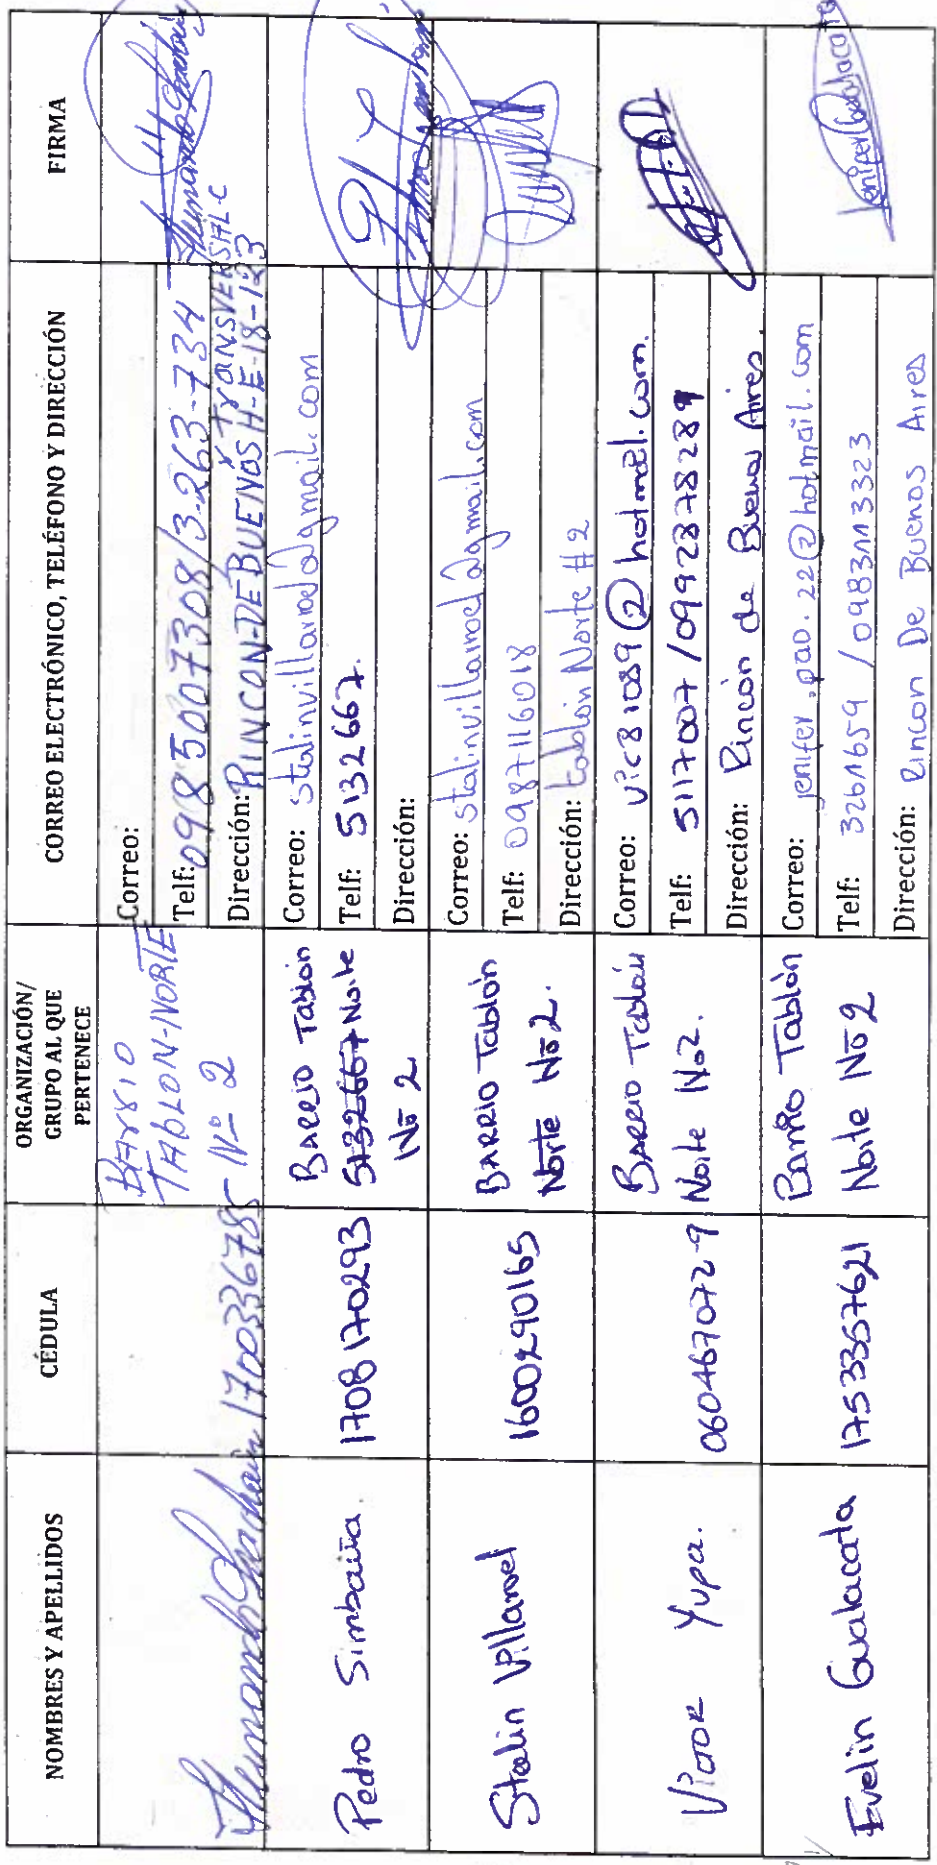 NOMBRES Y APELLIDOS
CÉDULA
ORGANIZACIÓN/
GRUPO AL QUE
PERTENECE
CORREO ELECTRÓNICO, TELÉFONO Y DIRECCIÓN
FIRMA
1700336785
Barrio
TABLON-NORTE
Nº 2
Correo:
Telf: 0985007308/3-263-734
Dirección: RINCON-DE BUENOS H-E-18-123
Y TRANSVERSAL-C
Pedro Simbaña.
1708170293
BARRIO Tablón
5132667 Norte
Nº 2
Correo: stalinvillaroel@gmail.com
Telf: 5132667.
Dirección:
Stalin Villaroel
1600290165
BARRIO Tablón
Norte Nº 2.
Correo: stalinvillaroel@gmail.com
Telf: 0987116018
Dirección: tablón Norte #2
Victor Yupa.
060467072-9
BARRIO Tablón
Norte Nº2.
Correo: vic31089@hotmail.com.
Telf: 5117007/0992878289
Dirección: Rincón de Buenos Aires.
Evelin Gualacata
1753357621
Barrio Tablón
Norte Nº 2
Correo: jenifer.pao.22@hotmail.com
Telf: 3261659 / 0983113323
Dirección: Rincon De Buenos Aires
Jenifer Gualacata